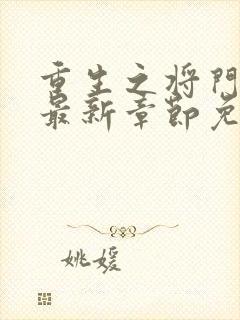 重生之将門
最新章節免
姚媛